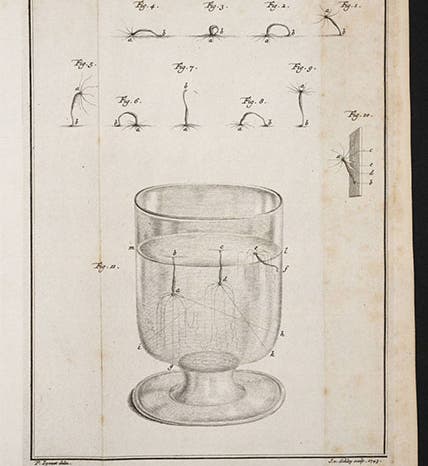 Fig. 4. Fig. 3. Fig. 2. Fig. 1.
a
a b a b a b
Fig. 5. Fig. 7. Fig. 9.
a b a
Fig. 6. Fig. 8.
b b a a a b b
Fig. 10.
c
a e
d
b
m b c e l
f
Fig. 11. d
a
h
i k
g
P. Lyonet delin. J. v. Schley sculp. 1743.